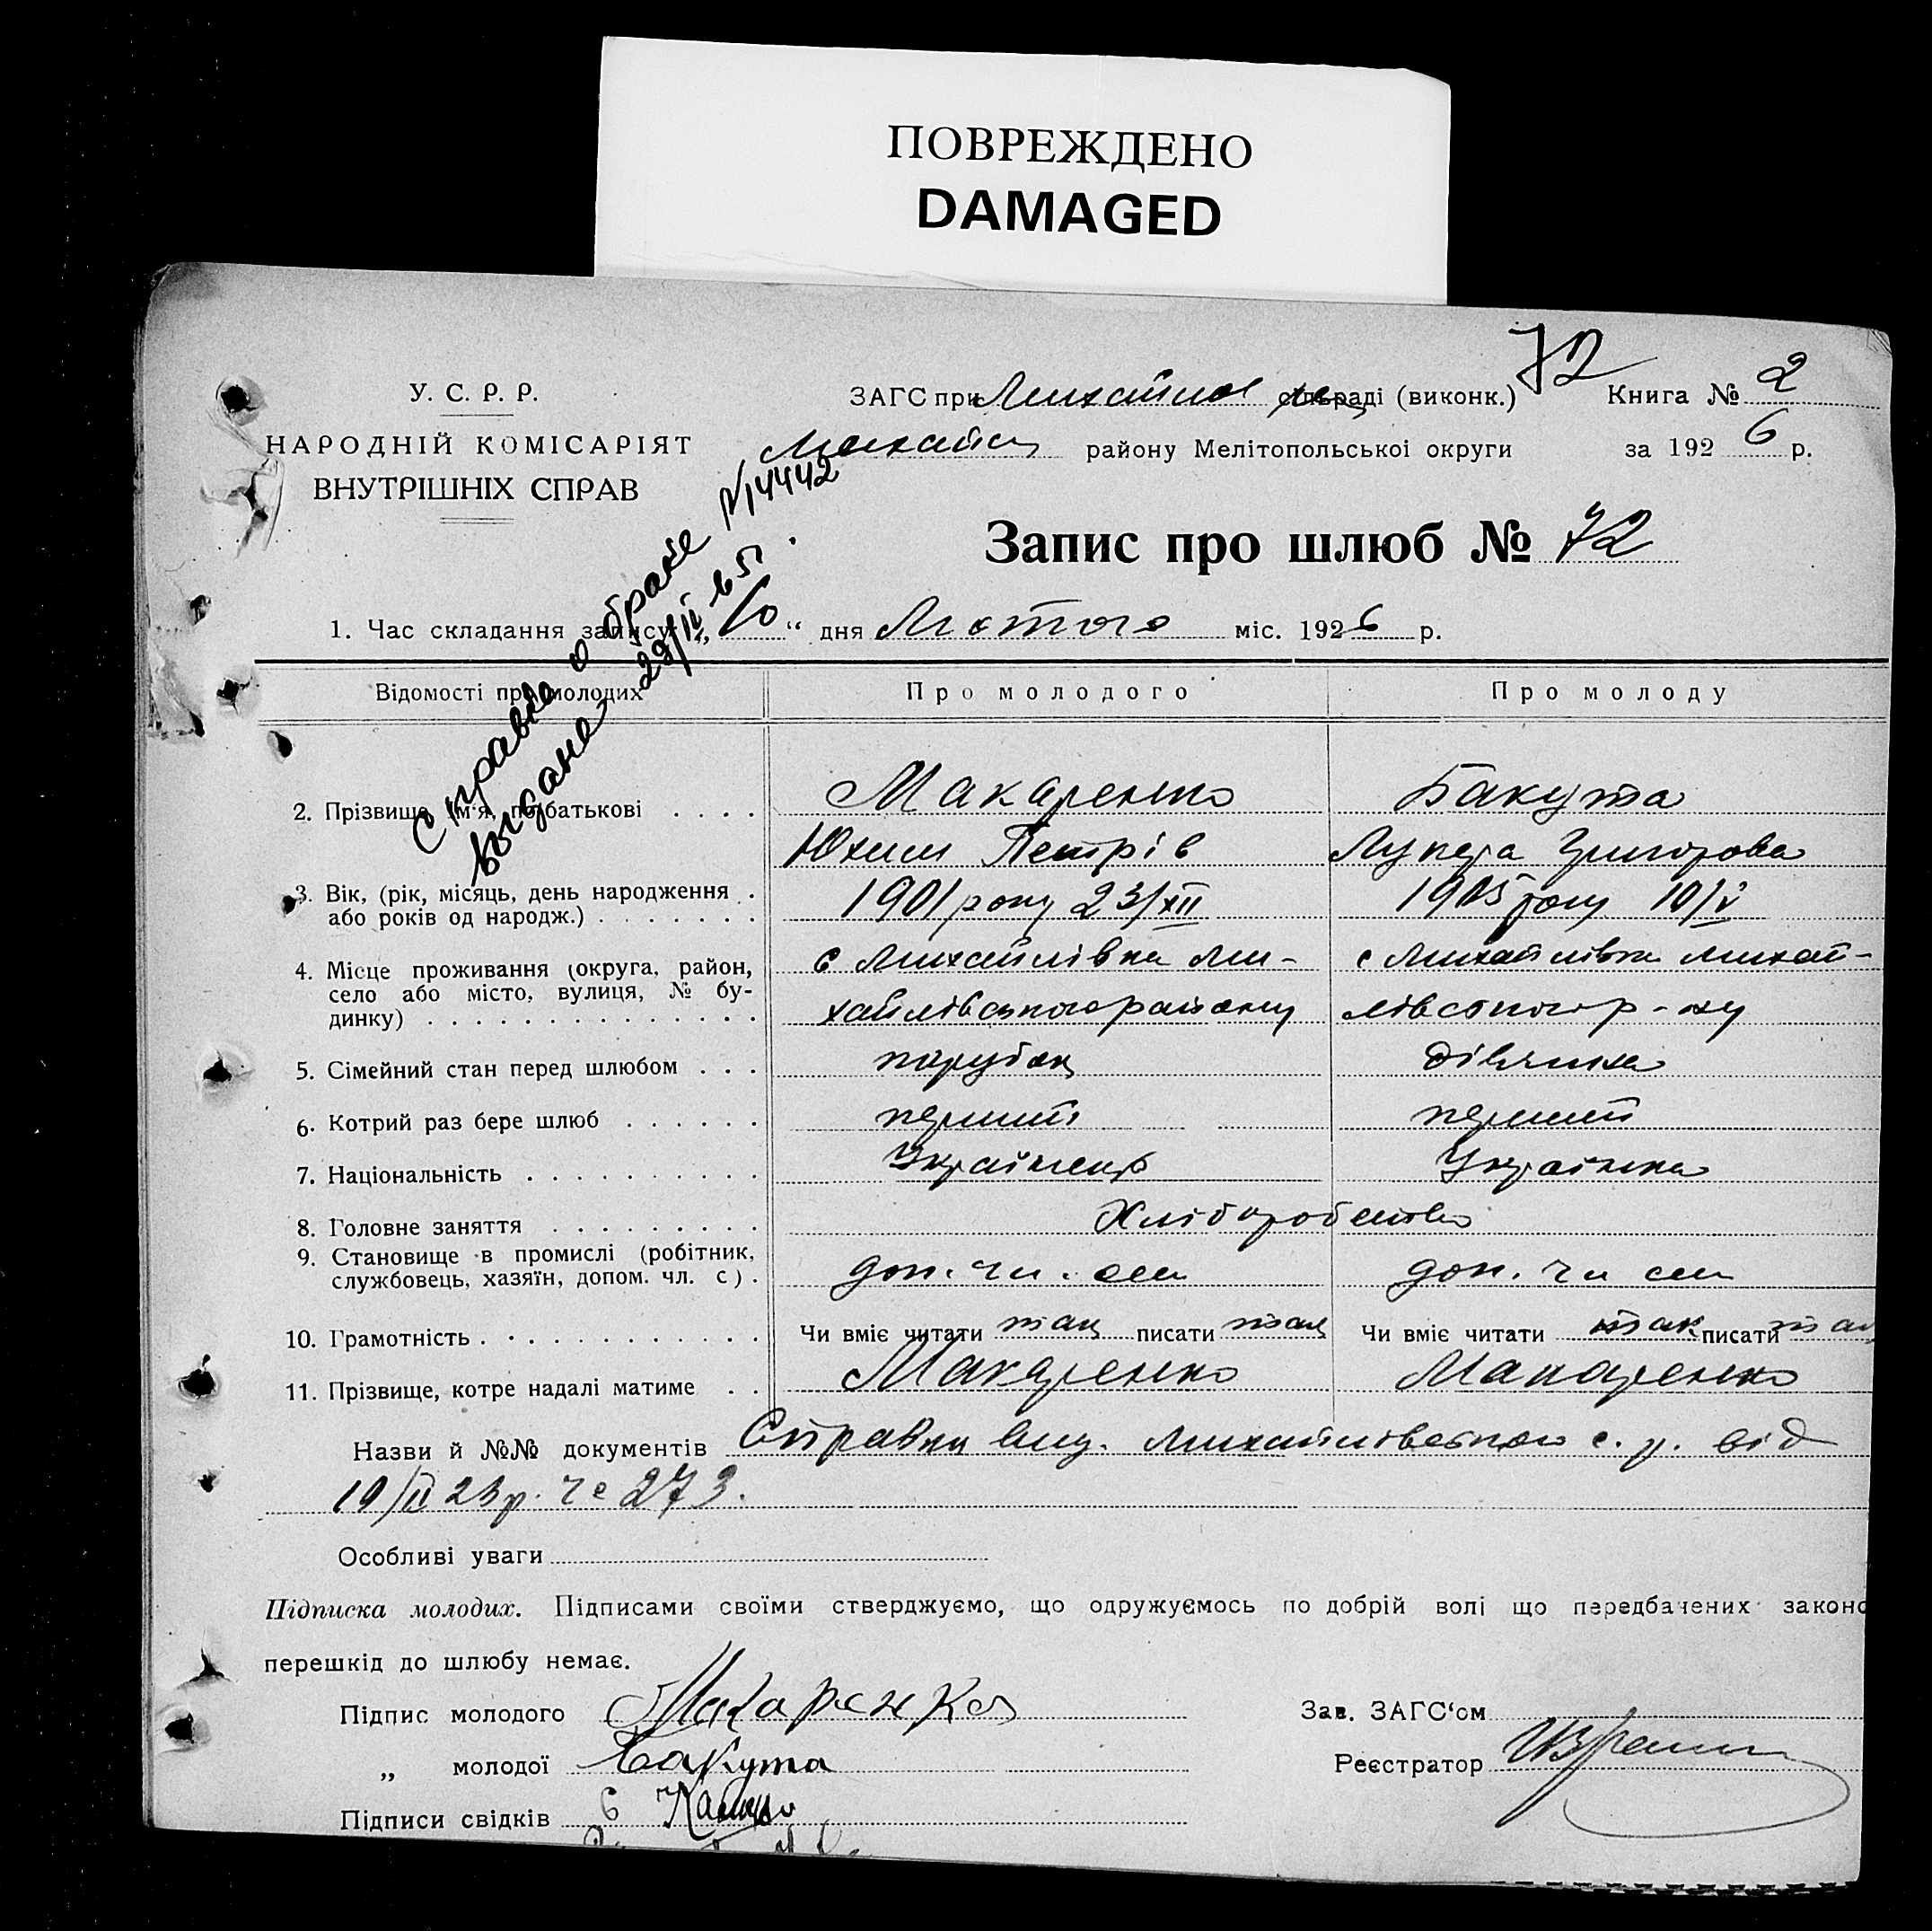 ПОВРЕЖДЕНО
DAMAGED
72
У. С. Р. Р.
НАРОДНІЙ КОМІСАРІЯТ
ВНУТРІШНІХ СПРАВ
ЗАГС при сільраді (виконк.)
Книга № 2
району Мелітопольської округи
за 1926 р.
Справка о браке №14442
выдана 29/IV
Запис про шлюб № 72
1. Час складання запису „10“ дня Лютого міс. 1926 р.
Відомості про молодих
Про молодого
Про молоду
2. Прізвище, ім'я, по батькові . . . .
Макаренко
Юхим Петрів
Бакута
Григорова
3. Вік, (рік, місяць, день народження .
або років од народж.) . . . . . . .
1901 року 23/XII
1905 року 10/V
4. Місце проживання (округа, район,
село або місто, вулиця, № бу-
динку) . . . . . . . . . . . . . .
с Михайлівка Ми-
хайлівського району
с Михайлівка Михай-
лівського р-ну
5. Сімейний стан перед шлюбом . . .
парубок
дівчина
6. Котрий раз бере шлюб . . . . . .
перший
перший
7. Національність . . . . . . . . . .
Українець
Українка
8. Головне заняття . . . . . . . . .
Хліборобство
9. Становище в промислі (робітник,
службовець, хазяїн, допом. чл. с) .
доп. чл. сем
доп. чл сем
10. Грамотність . . . . . . . . . . . .
Чи вміє читати так писати так
Чи вміє читати так писати так
11. Прізвище, котре надалі матиме . .
Макаренко
Макаренко
Назви й №№ документів Справка вид. Михайлівською с. р. від
10/II 2 р. че 273.
Особливі уваги
Підписка молодих. Підписами своїми стверджуємо, що одружуємось по добрій волі що передбачених законо
перешкід до шлюбу немає.
Підпис молодого Макаренко
„ молодої Бакута
Підписи свідків
Зав. ЗАГС‘ом
Реєстратор